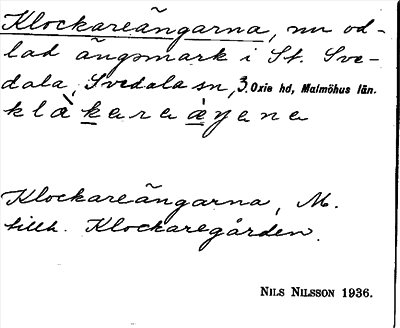 Klockareängarna, nu od-
lad ängsmark i St. Sve-
dala, Svedala sn, 3. Oxie hd, Malmöhus län.
klàkara æ̀ŋana
Klockareängarna, M.
tillh. Klockaregården.
NILS NILSSON 1936.